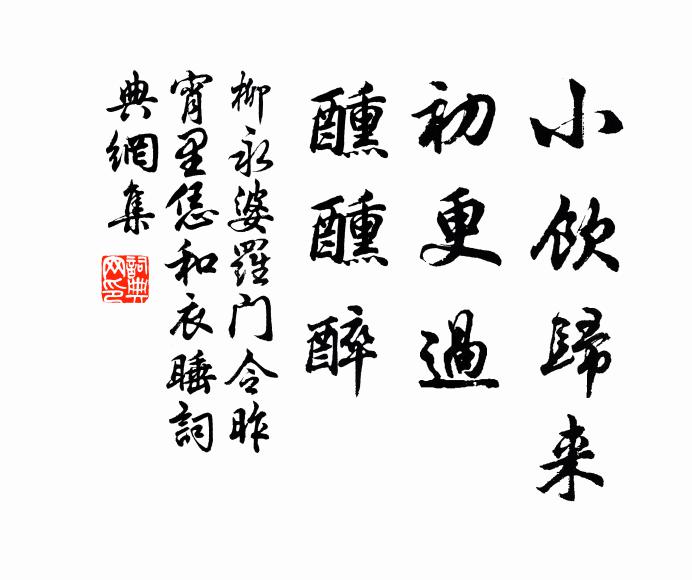 小飲歸来
初更過
醺醺醉
柳永婆羅门令昨
宵里恁和衣睡詞
典網集
詞典
网印